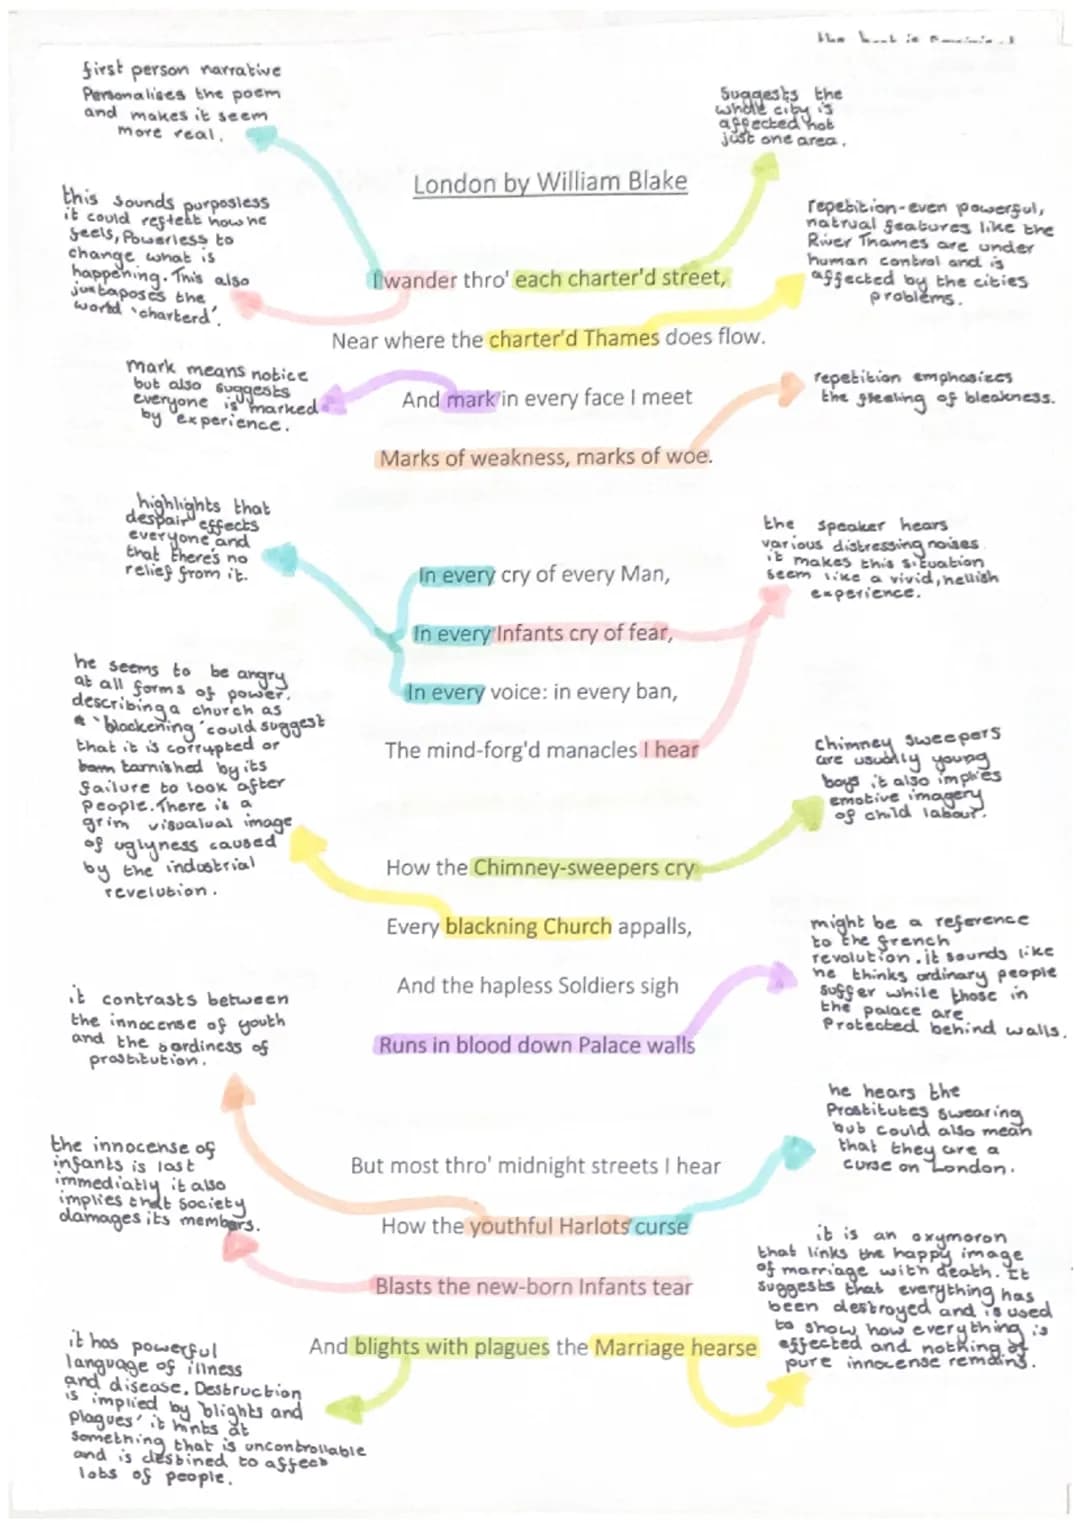 first person narrative
Personalises the poem
and makes it seem
more real.
Suggests the
whole city is
affected not
just one area.
London by William Blake
this sounds purposless
it could reflect how he
feels, Powerless to
change what is
happening. This also
juxtaposes the
world 'charterd'.
repetition-even powerful,
natrual features like the
River Thames are under
human control and is
affected by the cities
problems.
I wander thro' each charter'd street,
Near where the charter'd Thames does flow.
And mark in every face I meet
Marks of weakness, marks of woe.
mark means notice
but also suggests
everyone is 'marked'
by experience.
repetition emphasises
the feeling of bleakness.
highlights that
despair effects
everyone and
that there's no
relief from it.
the speaker hears
various distressing noises
it makes this situation
seem like a vivid, hellish
experience.
In every cry of every Man,
In every Infants cry of fear,
In every voice: in every ban,
The mind-forg'd manacles I hear
he seems to be angry
at all forms of power.
describing a church as
a 'blackening' could suggest
that it is corrupted or
been tarnished by its
failure to look after
people. There is a
grim visualual image
of uglyness caused
by the industrial
revelution.
chimney sweepers
are usually young
boys it also implies
emotive imagery
of child labour.
How the Chimney-sweepers cry
Every blackning Church appalls,
And the hapless Soldiers sigh
Runs in blood down Palace walls
might be a reference
to the french
revolution. it sounds like
he thinks ordinary people
suffer while those in
the palace are
Protected behind walls.
it contrasts between
the innocense of youth
and the sordiness of
prostitution.
he hears the
Prostitutes swearing
but could also mean
that they are a
curse on London.
the innocense of
infants is lost
immediatly it also
implies that society
damages its members.
But most thro' midnight streets I hear
How the youthful Harlots curse
Blasts the new-born Infants tear
And blights with plagues the Marriage hearse
it is an oxymoron
that links the happy image
of marriage with death. It
suggests that everything has
been destroyed and is used
to show how everything is
effected and nothing of
pure innocense remains.
it has powerful
language of illness
and disease. Destruction
is implied by 'blights and
plagues' it hints at
something that is uncontrollable
and is destined to affect
lots of people.